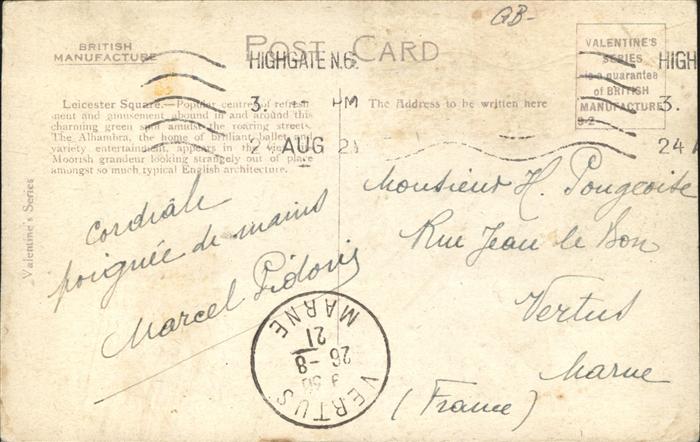 GB-
BRITISH
MANUFACTURE
POST CARD
HIGHGATE N.6.
3. PM
2 AUG 21
VALENTINE'S
SERIES
is a guarantee
of BRITISH
MANUFACTURE
HIGH
3.
24 A
Leicester Square.—Popular centres of refresh-
ment and amusement abound in and around this
charming green spot amidst the roaring streets.
The Alhambra, the home of brilliant ballet and
variety entertainment, appears in the view, its
Moorish grandeur looking strangely out of place
amongst so much typical English architecture.
The Address to be written here
Valentine's Series
cordiale
poignée de mains
Marcel
Monsieur H. Pougeoise
Rue Jean le Bon
Vertus
Marne
(France)
VERTUS
26-8
21
MARNE